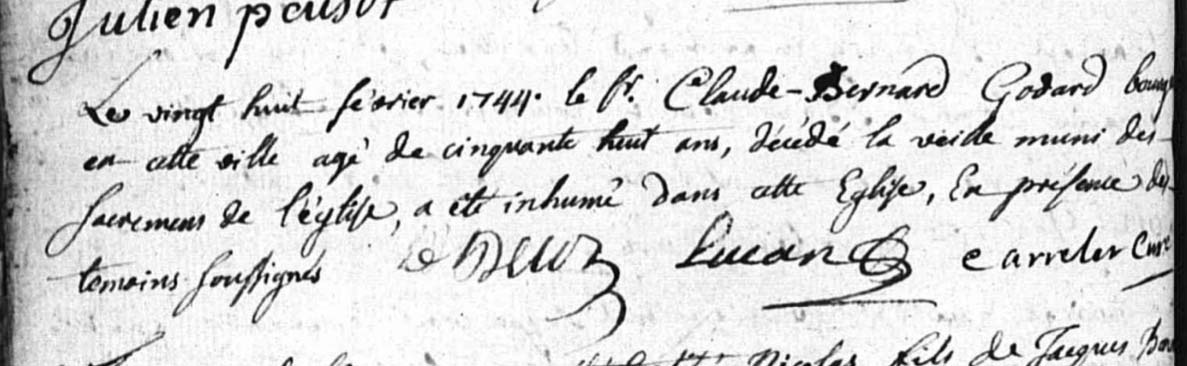 Julien peusot
Le vingt huit février 1744. le sr. Claude-Bernard Godard bourg
en cette ville agé de cinquante huit ans, décédé la veille muni des
sacremens de l'église, a eté inhumé dans cette Eglise, En présence des
temoins soussignés Lucan Carrelet Curé
Nicolas fils de Jacques